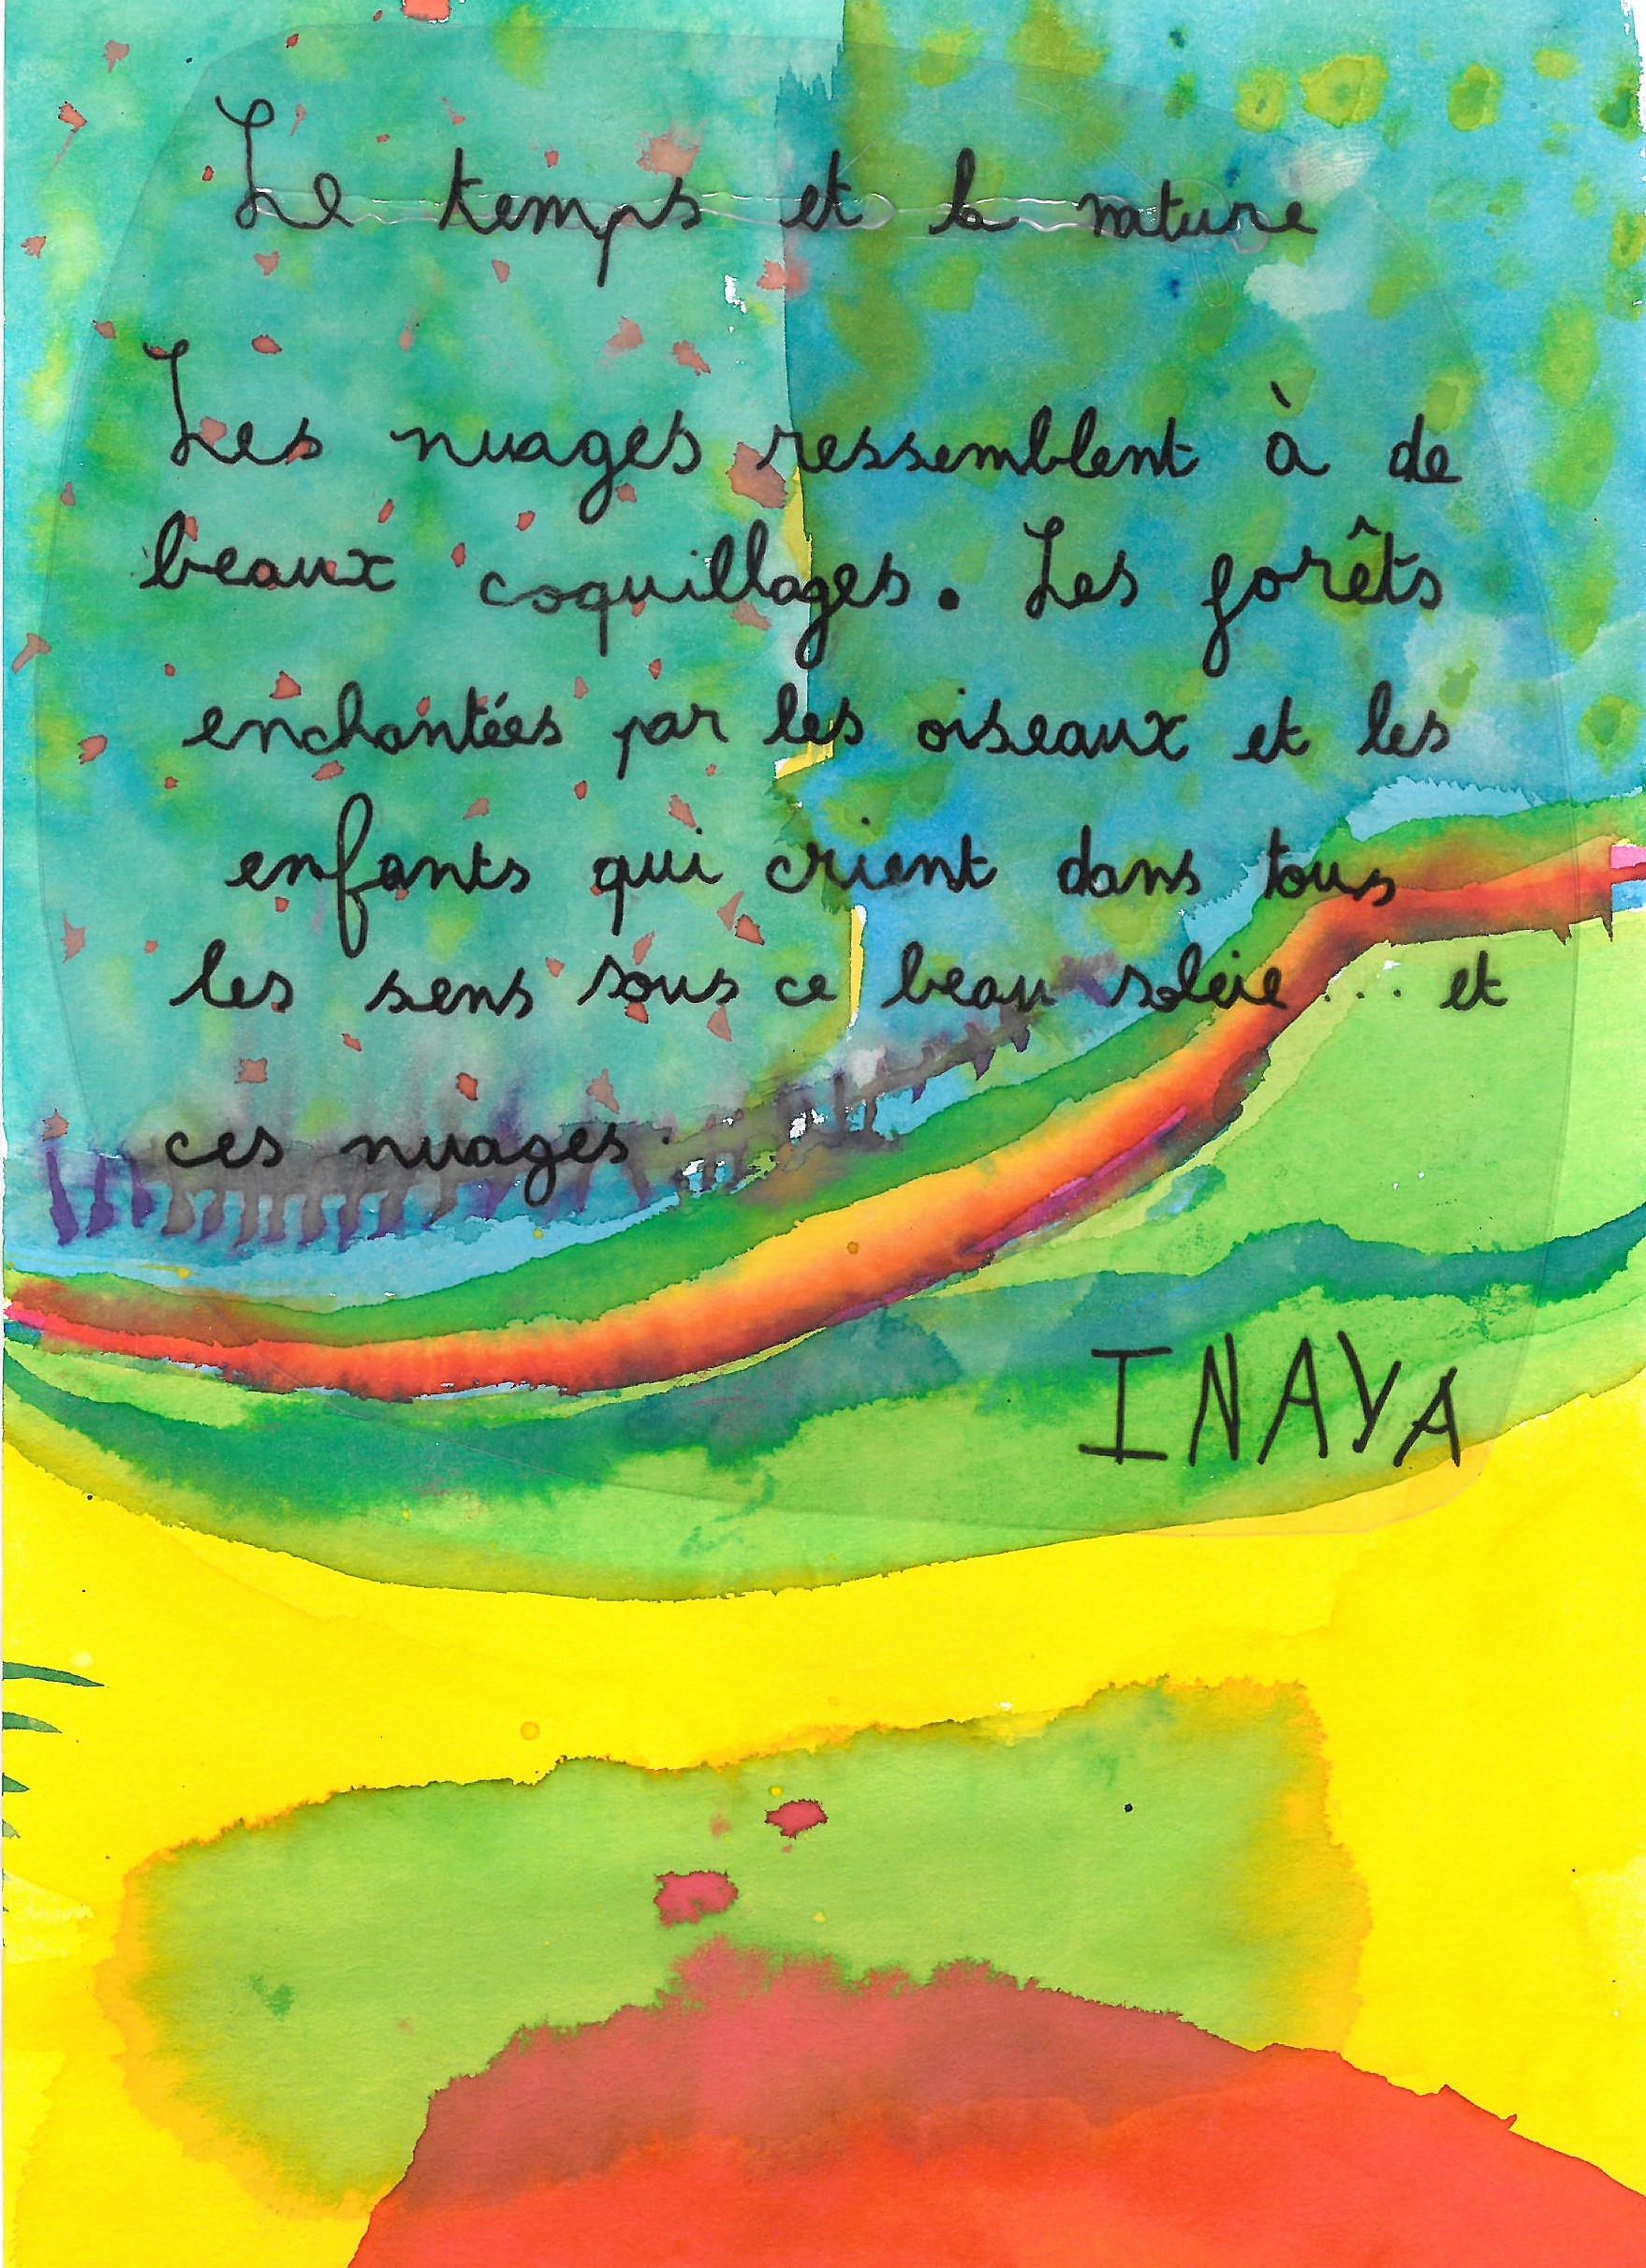 Le temps et la nature
Les nuages ressemblent à de
beaux coquillages. Les forêts
enchantées par les oiseaux et les
enfants qui crient dans tous
les sens sous ce beau soleie... et
ces nuages.
INAYA